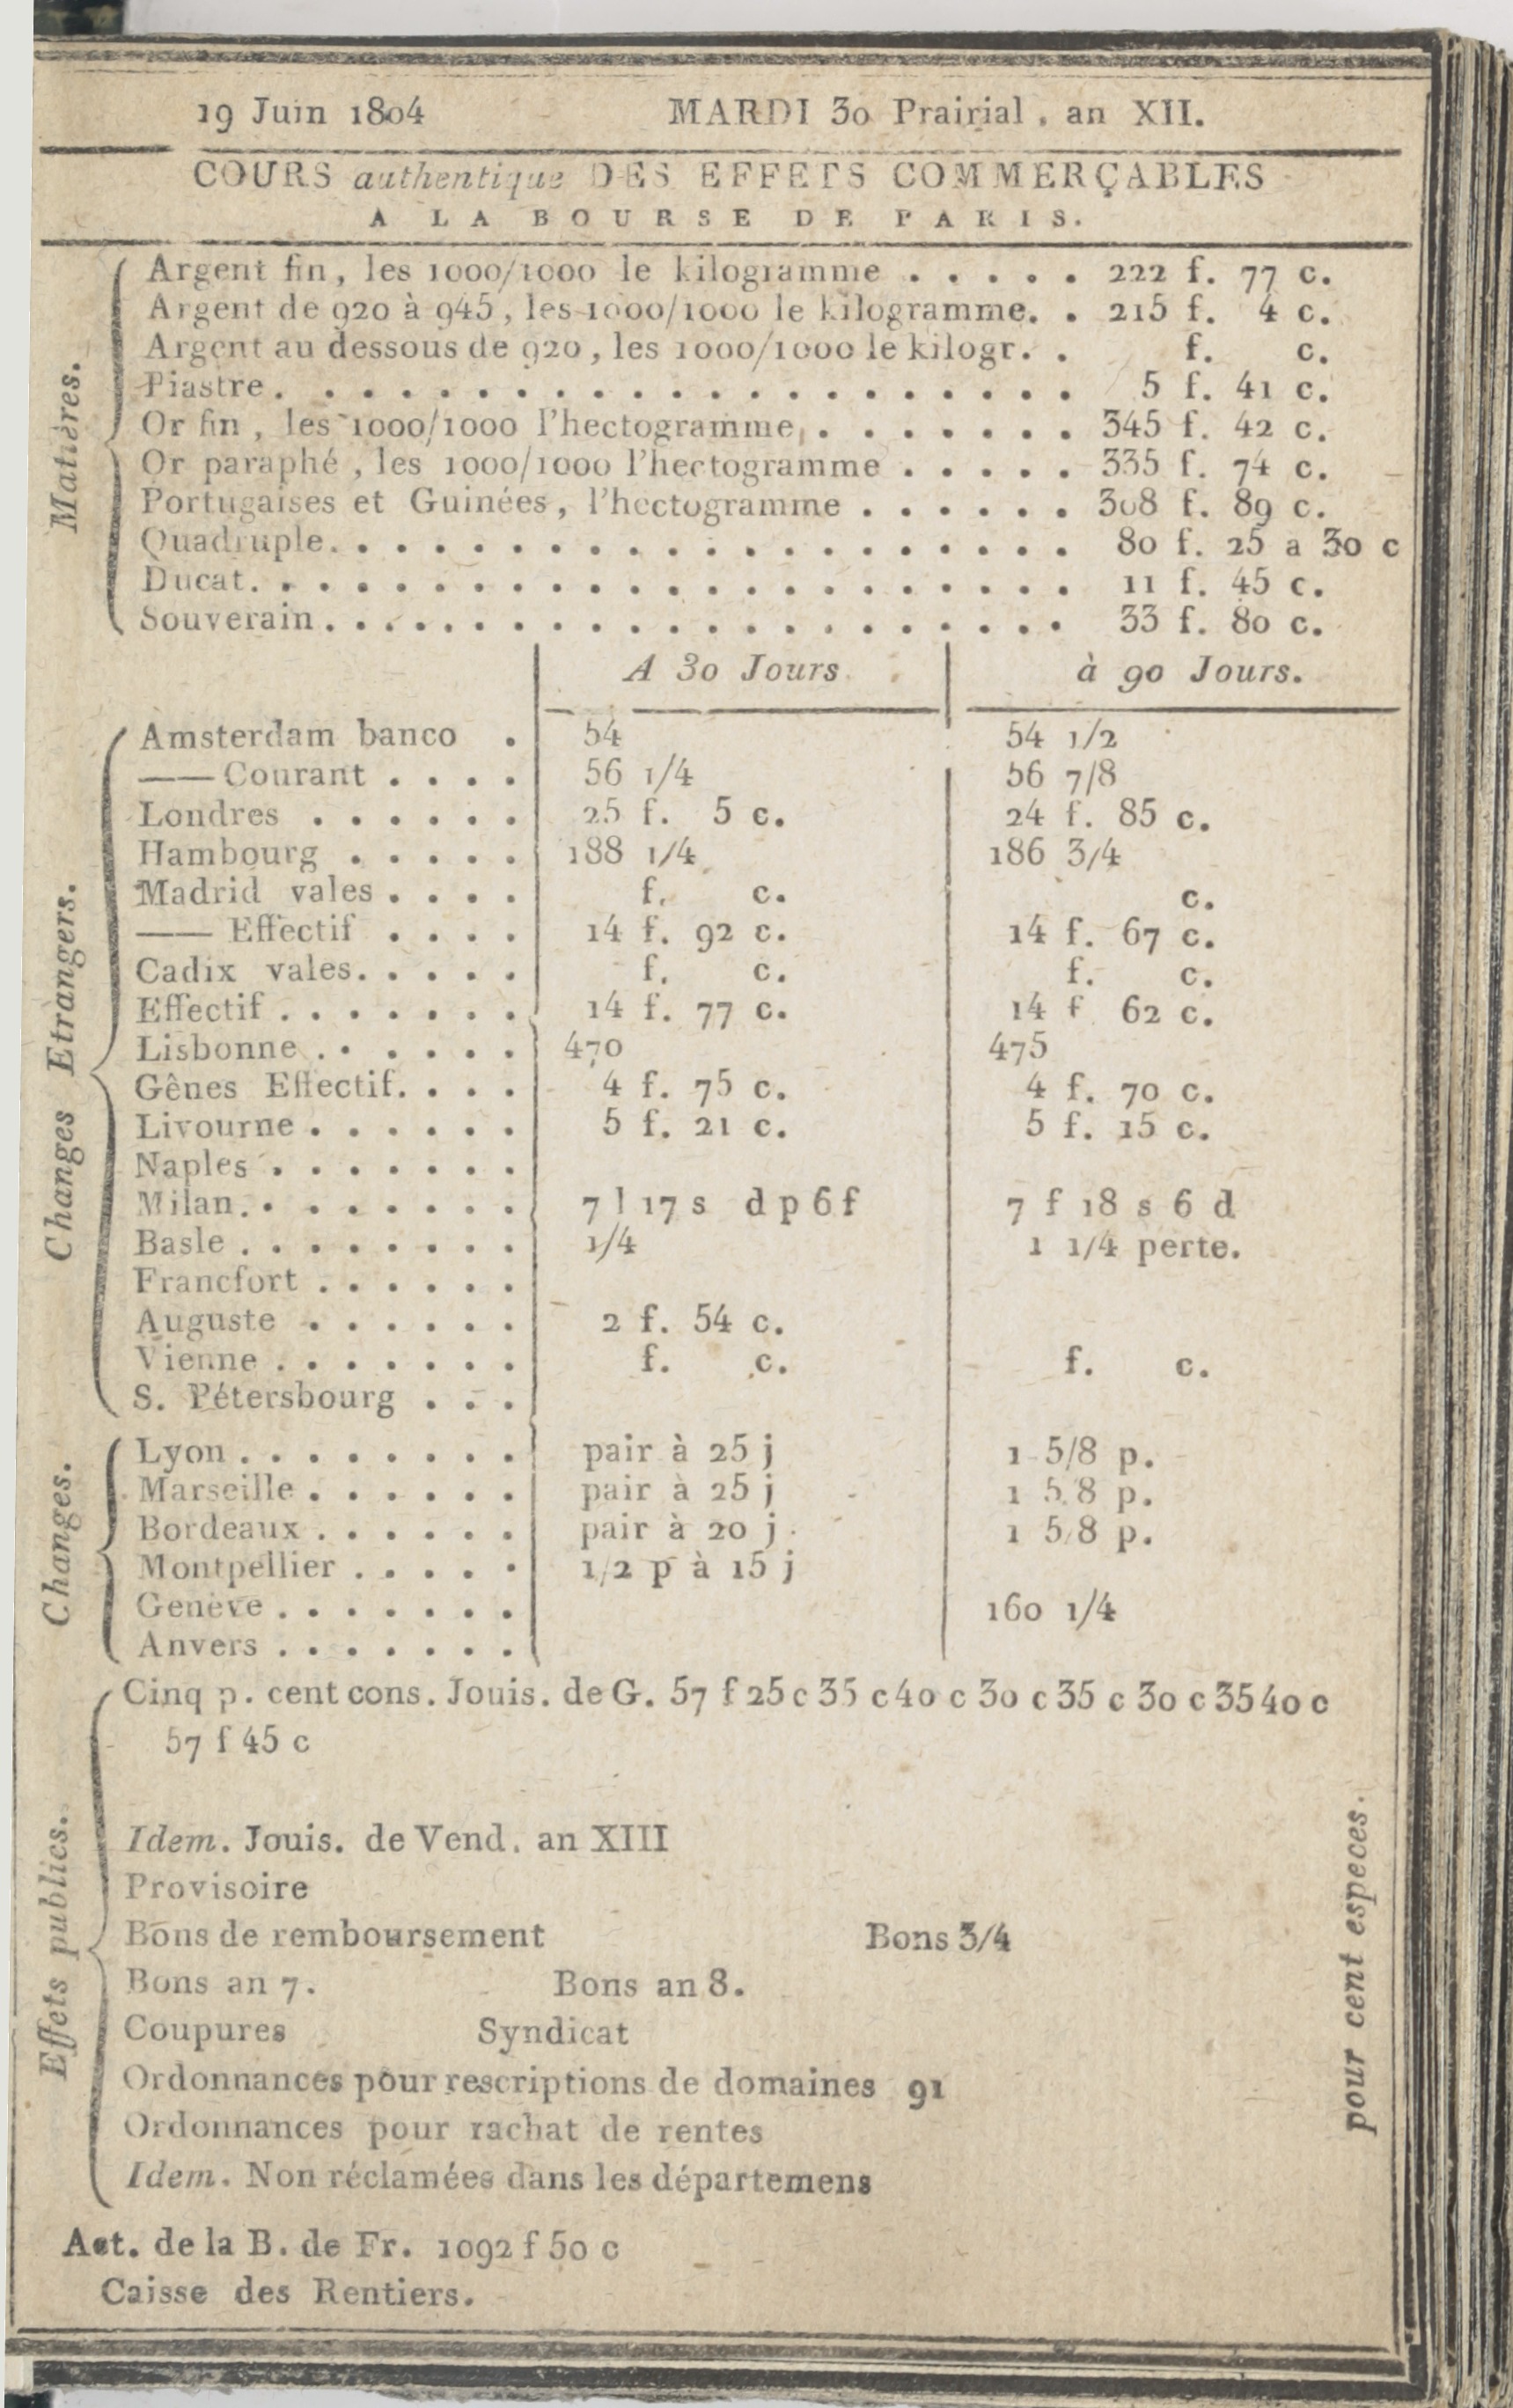 19 Juin 1804 MARDI 30 Prairial, an XII.
COURS authentique DES EFFETS COMMERÇABLES
A LA BOURSE DE PARIS.
Matières.
Argent fin, les 1000/1000 le kilogramme . . . . . 222 f. 77 c.
Argent de 920 à 945, les 1000/1000 le kilogramme. . 215 f. 4 c.
Argent au dessous de 920, les 1000/1000 le kilogr. . . f. c.
Piastre. . . . . . . . . . . . . . . . . . . . . 5 f. 41 c.
Or fin, les 1000/1000 l'hectogramme, . . . . . . . 345 f. 42 c.
Or paraphé, les 1000/1000 l'hectogramme . . . . . 335 f. 74 c.
Portugaises et Guinées, l'hectogramme . . . . . . 308 f. 89 c.
Quadruple. . . . . . . . . . . . . . . . . . . . 80 f. 25 a 30 c
Ducat. . . . . . . . . . . . . . . . . . . . . . 11 f. 45 c.
Souverain. . . . . . . . . . . . . . . . . . . . 33 f. 80 c.
A 30 Jours. à 90 Jours.
Changes Etrangers.
Amsterdam banco . 54 54 1/2
—— Courant . . . . 56 1/4 56 7/8
Londres . . . . . . 25 f. 5 c. 24 f. 85 c.
Hambourg . . . . . 188 1/4 186 3/4
Madrid vales . . . . f. c. c.
—— Effectif . . . . 14 f. 92 c. 14 f. 67 c.
Cadix vales. . . . . f. c. f. c.
Effectif . . . . . . . 14 f. 77 c. 14 f 62 c.
Lisbonne . . . . . . 470 475
Gênes Effectif. . . . 4 f. 75 c. 4 f. 70 c.
Livourne . . . . . . 5 f. 21 c. 5 f. 15 c.
Naples . . . . . . .
Milan. . . . . . . . 7 l 17 s d p 6 f 7 f 18 s 6 d
Basle . . . . . . . . 1/4 1 1/4 perte.
Francfort . . . . . .
Auguste . . . . . . 2 f. 54 c.
Vienne . . . . . . . f. c. f. c.
S. Pétersbourg . . .
Changes.
Lyon . . . . . . . . pair à 25 j 1 5/8 p.
Marseille . . . . . . pair à 25 j 1 5/8 p.
Bordeaux . . . . . . pair à 20 j. 1 5/8 p.
Montpellier . . . . . 1/2 p à 15 j
Genève . . . . . . . 160 1/4
Anvers . . . . . . .
Effets publics.
Cinq p. cent cons. Jouis. de G. 57 f 25 c 35 c 40 c 30 c 35 c 30 c 35 40 c
57 f 45 c
Idem. Jouis. de Vend. an XIII
Provisoire
Bons de remboursement Bons 3/4
Bons an 7. Bons an 8.
Coupures Syndicat
Ordonnances pour rescriptions de domaines 91
Ordonnances pour rachat de rentes
Idem. Non réclamées dans les départemens
pour cent especes.
Act. de la B. de Fr. 1092 f 50 c
Caisse des Rentiers.